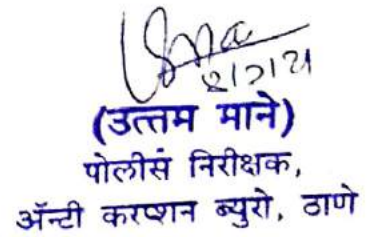 (उत्तम माने)
पोलीस निरीक्षक,
ॲन्टी करप्शन ब्युरो, ठाणे